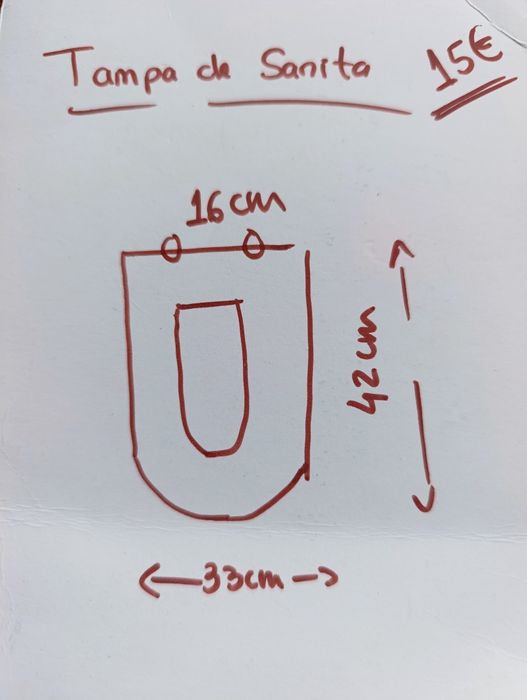 Tampa de Sanita 15€
16cm
42cm
33cm